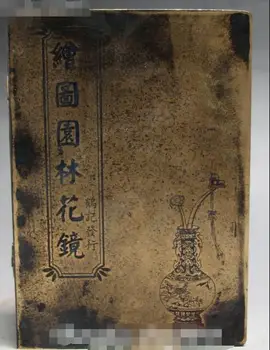 繪圖園林花鏡
鴻記發行